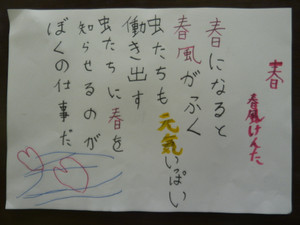 春
春風けんた
春になると
春風がふく
虫たちも元気いっぱい
働き出す
虫たちに春を
知らせるのが
ぼくの仕事だ